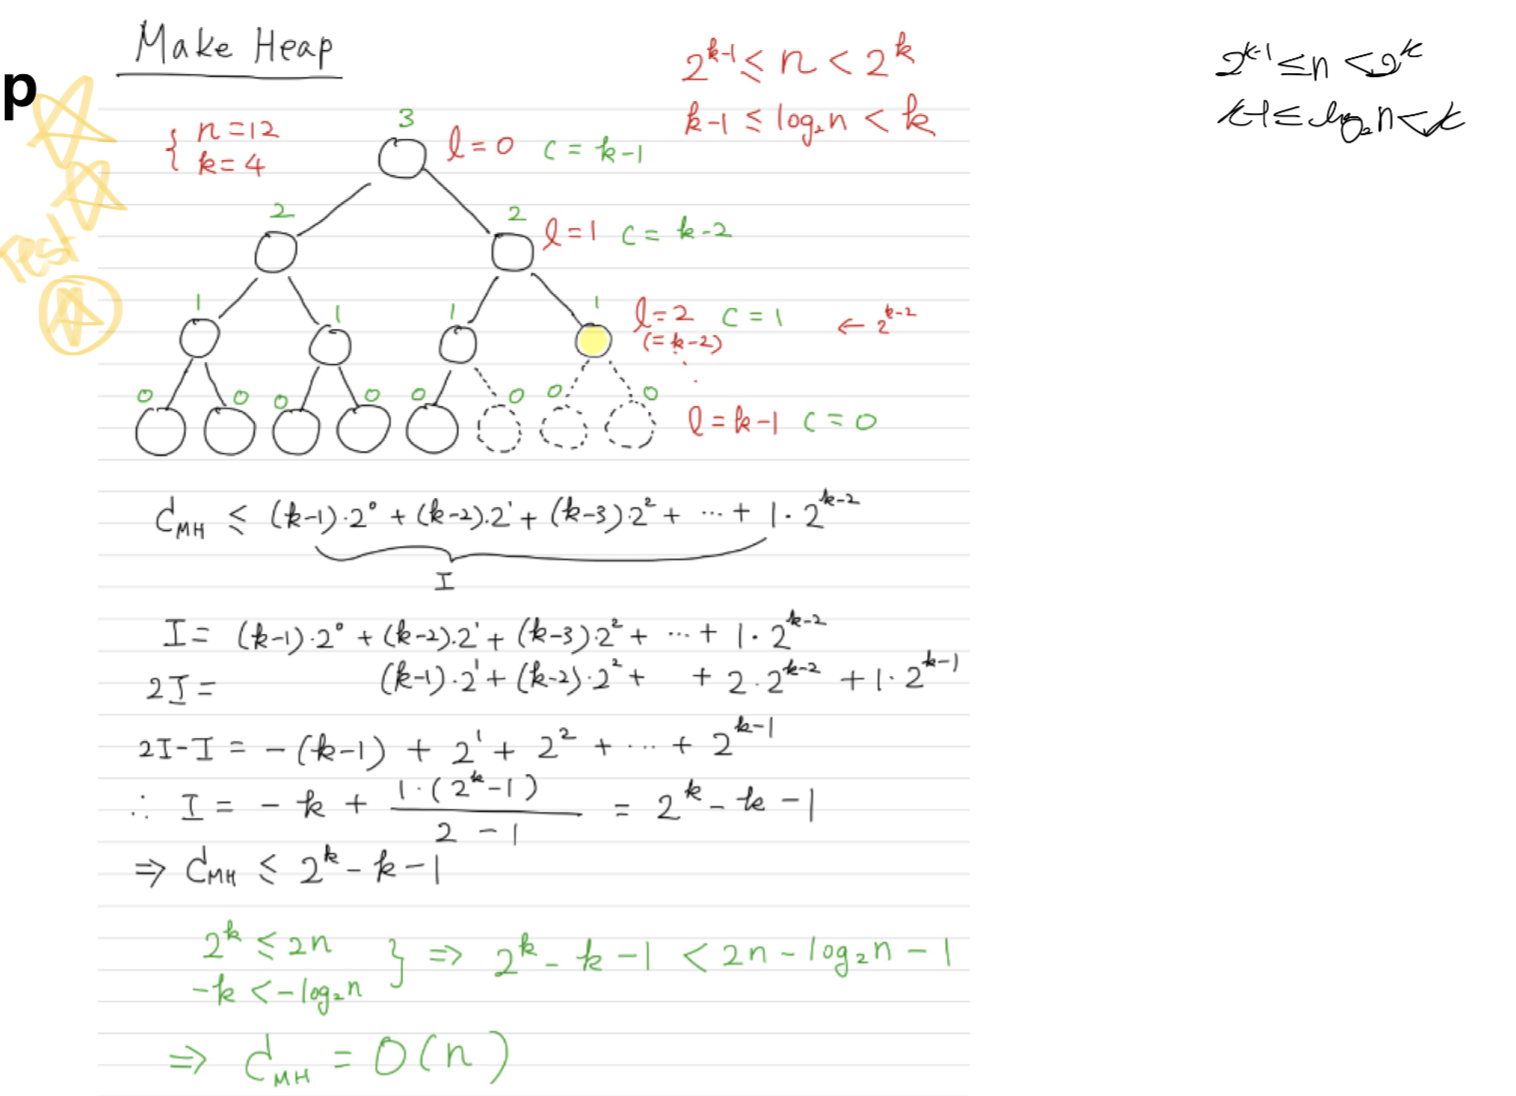 Make Heap
2^{k-1} ≤ n < 2^k
k-1 ≤ log₂n < k
2^{k-1} ≤ n < 2^k
k-1 ≤ log₂n < k
p
Test
{ n = 12
k = 4
3
l = 0 c = k-1
2 2
l = 1 c = k-2
1 1 1 1
l = 2 c = 1 ← 2^{k-2}
(= k-2)
0 0 0 0 0 0 0 0
l = k-1 c = 0
C_{MH} ≤ (k-1)·2⁰ + (k-2)·2¹ + (k-3)·2² + ··· + 1·2^{k-2}
I
I = (k-1)·2⁰ + (k-2)·2¹ + (k-3)·2² + ··· + 1·2^{k-2}
2I = (k-1)·2¹ + (k-2)·2² + + 2·2^{k-2} + 1·2^{k-1}
2I - I = -(k-1) + 2¹ + 2² + ··· + 2^{k-1}
∴ I = -k + 1·(2^k-1) / 2-1 = 2^k - k - 1
⇒ C_{MH} ≤ 2^k - k - 1
2^k ≤ 2n
-k < -log₂n } ⇒ 2^k - k - 1 < 2n - log₂n - 1
⇒ C_{MH} = O(n)